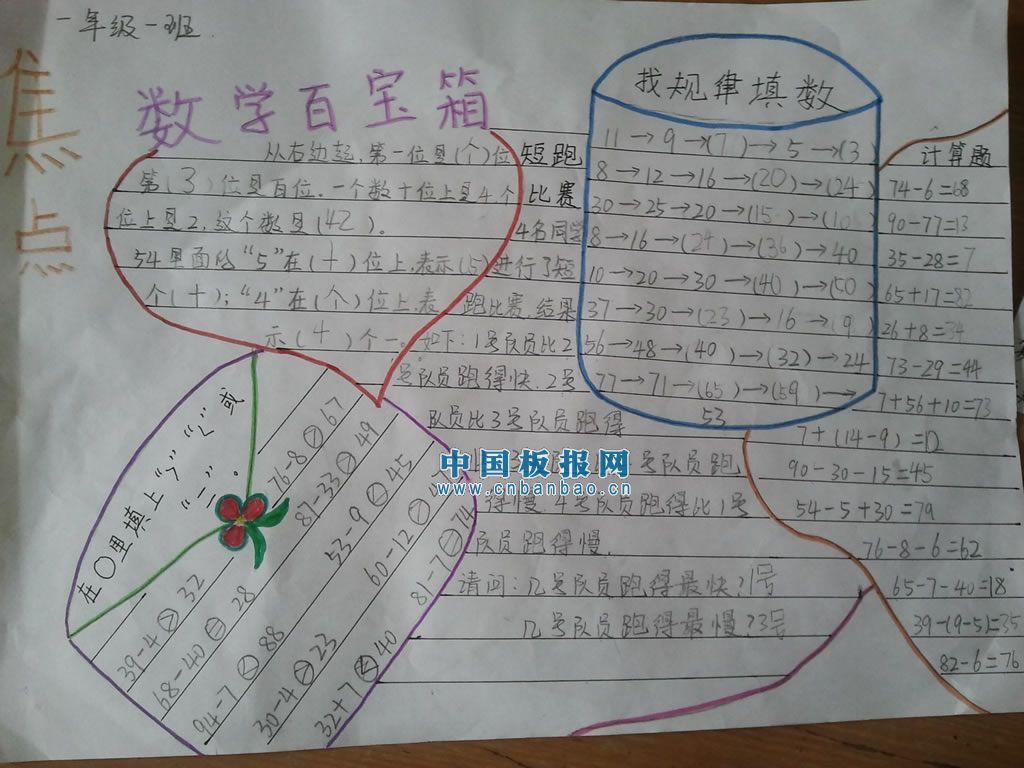 一年级一班
焦点
数学百宝箱
从右边起,第一位是(个)位
第(3)位是百位。一个数十位上是4,个
位上是2,这个数是(42)。
54里面的“5”在(十)位上,表示(5)
个(十);“4”在(个)位上,表
示(4)个一。
短跑
比赛
4名同学
进行了短
跑比赛,结果
如下:1号队员比2
号队员跑得快,2号
队员比3号队员跑得
号队员跑
得慢 4号队员跑得比1号
队员跑得慢.
请问:几号队员跑得最快?1号
几号队员跑得最慢?3号
找规律填数
11→9→(7)→5→(3)
8→12→16→(20)→(24)
30→25→20→(15)→(10)
8→16→(24)→(36)→40
10→20→30→(40)→(50)
37→30→(23)→16→(9)
56→48→(40)→(32)→24
77→71→(65)→(59)→
53
计算题
74-6=68
90-77=13
35-28=7
65+17=82
26+8=34
73-29=44
7+56+10=73
7+(14-9)=12
90-30-15=45
54-5+30=79
76-8-6=62
65-7-40=18
39-(9-5)=35
82-6=76
在○里填上“>”“<”或
“=”。
76-8 > 67
87-33 > 49
53-9 < 45
60-12
81-7 = 74
39-4 > 32
68-40 = 28
94-7 < 88
30-4 > 23
32+7 < 40
中国板报网
www.cnbanbao.cn